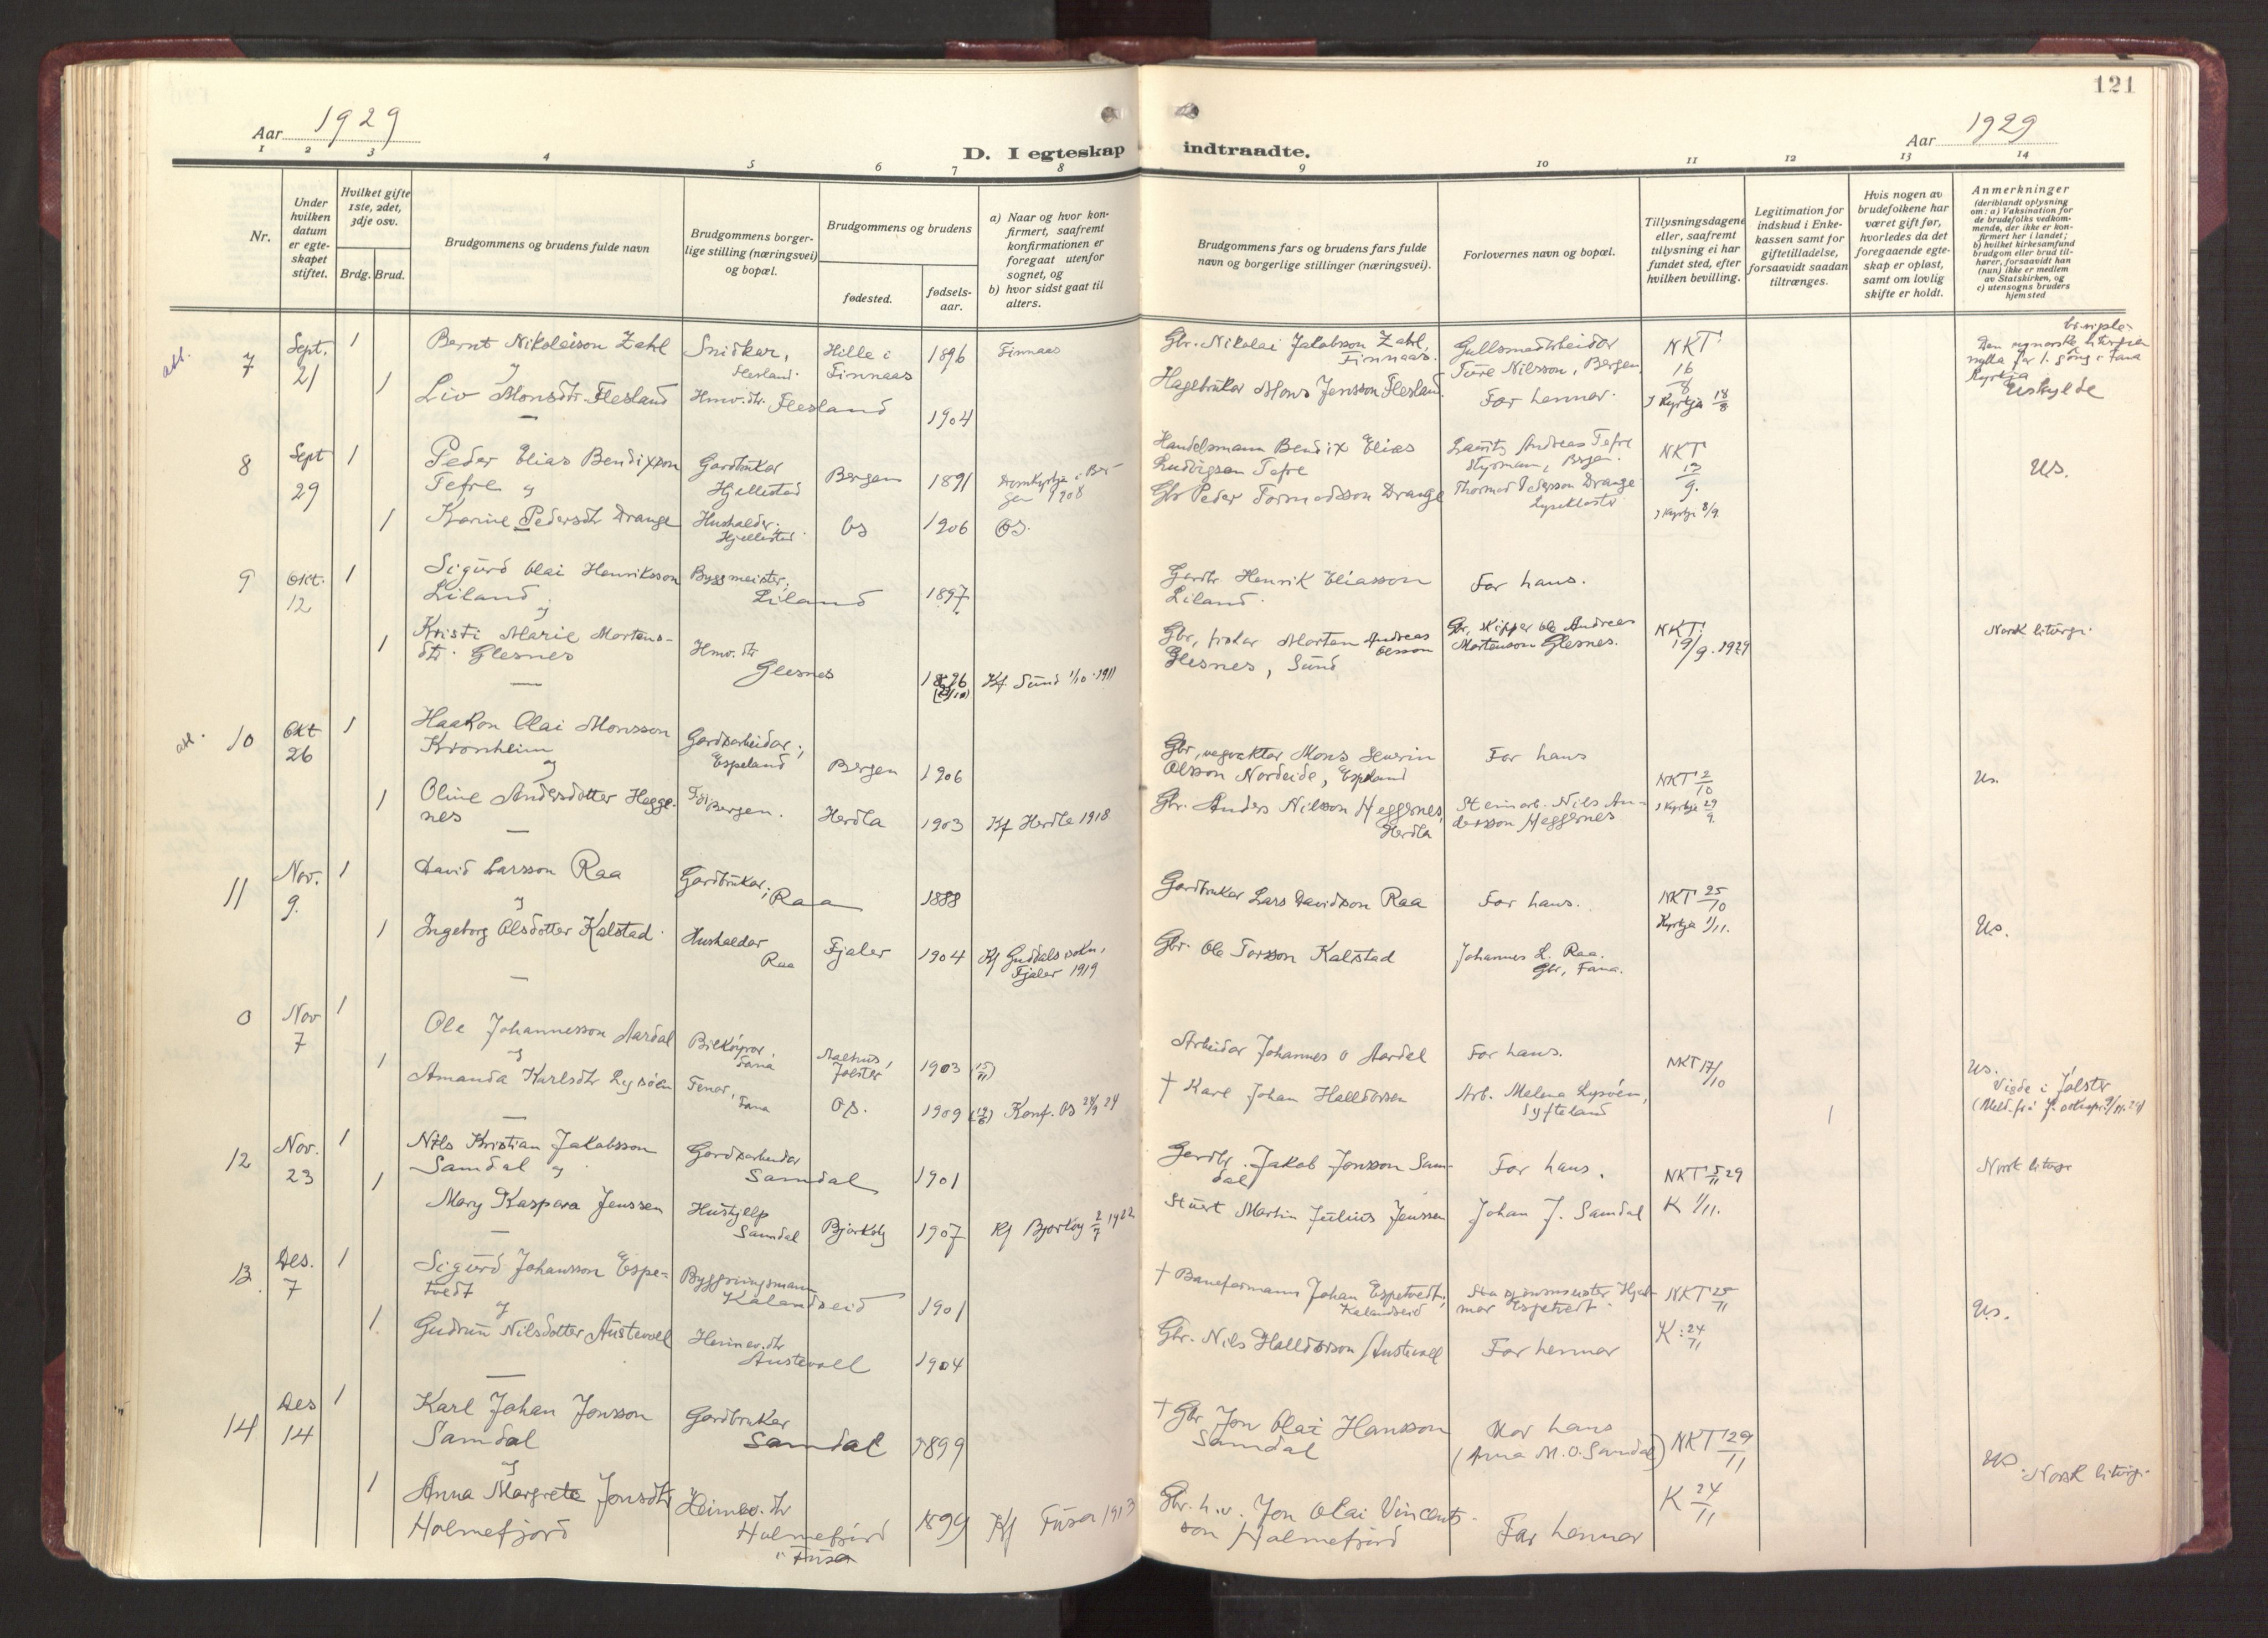 121
Aar 1929
D. I egteskap indtraadte.
Aar 1929
1 2 3 4 5 6 7 8 9 10 11 12 13 14
Nr.
Under hvilken datum er egteskapet stiftet.
Hvilket gifte 1ste, 2det, 3dje osv.
Brdg. Brud.
Brudgommens og brudens fulde navn
Brudgommens borgerlige stilling (næringsvei) og bopæl.
Brudgommens og brudens
fødested.
fødselsaar.
a) Naar og hvor konfirmert, saafremt konfirmationen er foregaat utenfor sognet, og
b) hvor sidst gaat til alters.
Brudgommens fars og brudens fars fulde navn og borgerlige stillinger (næringsvei).
Forlovernes navn og bopæl.
Tillysningsdagene eller, saafremt tillysning ei har fundet sted, efter hvilken bevilling.
Legitimation for indskud i Enkekassen samt for giftetilladelse, forsaavidt saadan tiltrænges.
Hvis nogen av brudefolkene har været gift før, hvorledes da det foregaaende egteskap er opløst, samt om lovlig skifte er holdt.
Anmerkninger
(deriblandt oplysning om: a) Vaksination for de brudefolks vedkommende, der ikke er konfirmert her i landet; b) hvilket kirkesamfund brudgom eller brud tilhører, forsaavidt han (hun) ikke er medlem av Statskirken, og c) utensogns bruders hjemsted
7 Sept. 21 1 Bernt Nikolaison Zahl Snidkar, Flesland. Hille i Finnaas 1896 Finnaas
Gbr. Nikolai Jakobsson Zahl, Finnaas. Gullsmedarbeidar Ture Nilsson, Bergen NKT 16/8
og
1 Liv Monsdtr. Flesland Hmv. dtr. Flesland 1904
Hagebrukar Mons Jensson Flesland. Far hennar. I Kyrkja 18/8 Uskylde
8 Sept 29 1 Peder Elias Bendixson Tefre og Gardbrukar Hjellestad Bergen 1891 Domkyrkja i Bergen 1908
Handelsmann Bendix Elias Ludvigsen Tefre Lauritz Andreas Tefre Styrmann, Bergen. NKT 13/9. Us.
1 Karine Pedersdtr Drange Hushalder, Hjellestad Os 1906 Os.
Gbr Peder Tormodsson Drange Thormod Pedersson Drange Lysekloster I Kyrkja 8/9.
9 Okt. 12 1 Sigurd Olai Henriksson Liland og Byggmeister, Liland 1897
Gardbr. Henrik Eliasson Liland. Far hans.
1 Kristi Marie Mortensdtr. Glesnes Hmv. dtr Glesnes 1896 Kf Sund 1/10 1911
Gbr, fiskar Morten Andreas Olsson Glesnes, Sund Gbr, skipper Ole Andreas Mortenson Glesnes. NKT. 19/9. 1929 Norsk liturgi.
10 Okt 26 1 Haakon Olai Monsson Kronheim og Gardsarbeidar, Espeland Bergen 1906
Gbr, vegvaktar Mons Severin Olsson Nordeide, Espeland Far hans NKT 2/10 Us.
1 Oline Andersdotter Heggenes Bergen. Herdla 1903 Kf Herdle 1918
Gbr. Anders Nilsson Heggernes, Herdla Steinarb. Nils Andersson Heggernes I Kyrkja 29/9.
11 Nov. 9. 1 David Larsson Raa Gardbrukar, Raa 1888
Gardbrukar Lars Davidson Raa Far hans. NKT 25/10
og
1 Ingeborg Olsdotter Kalstad. Hushaldar Raa Fjaler 1904 Kf Guddals sokn, Fjaler 1919
Gbr. Ola Torsson Kalstad Johannes L. Raa. Gbr, Fana. Kyrkja 1/11. Us.
0 Nov 7 1 Ole Johannesson Aardal Bilkøyrar, Fana Aalhus, Jølster 1903
Arbeidar Johannes O Aardal Far hans. NKT 17/10 Us. Vigde i Jølster
og
1 Amanda Karlsdtr Lysøen Fana Os. 1909 Konf. Os
† Karl Johan Halldorsen Arb. Malena Lysøen, Syfteland
12 Nov. 23 1 Nils Kristian Jakobsson Samdal og Gardsarbeidar Samdal 1901
Gardbr. Jakob Jonsson Samdal Far hans. NKT 5/11 29 Norsk liturgi
1 Mary Kaspara Jenssen Hushjelp Samdal Bjarkøy 1907 Kf Bjarkøy 2/7 1922
Stuert Martin Julius Jenssen Johan J. Samdal K 1/11.
13. Des. 7 1 Sigurd Johansson Espetvedt og Byggningsmann Kalandseid 1901
† Baneformann Johan Espetvedt, Kalandseid Hjalmar Espetvedt. NKT 25/11 Us.
1. Gudrun Nilsdotter Austevoll Heimev. dtr Austevoll 1904
Gbr. Nils Halldorson Austevoll Far hennar K: 24/11
14 Des 14 1 Karl Johan Jonsson Samdal og Gardbrukar Samdal 1899
† Gbr Jon Olai Hansson Samdal Mor hans (Anna M. O. Samdal) NKT 29/11 Us. Norsk liturgi.
1 Anna Margrete Jonsdtr Holmefjord Heimev. dtr Holmefjord Fusa 1899 Kf Fusa 1913
Gbr. h.v. Jon Olai Vincentsson Holmefjord Far hennar K 24/11